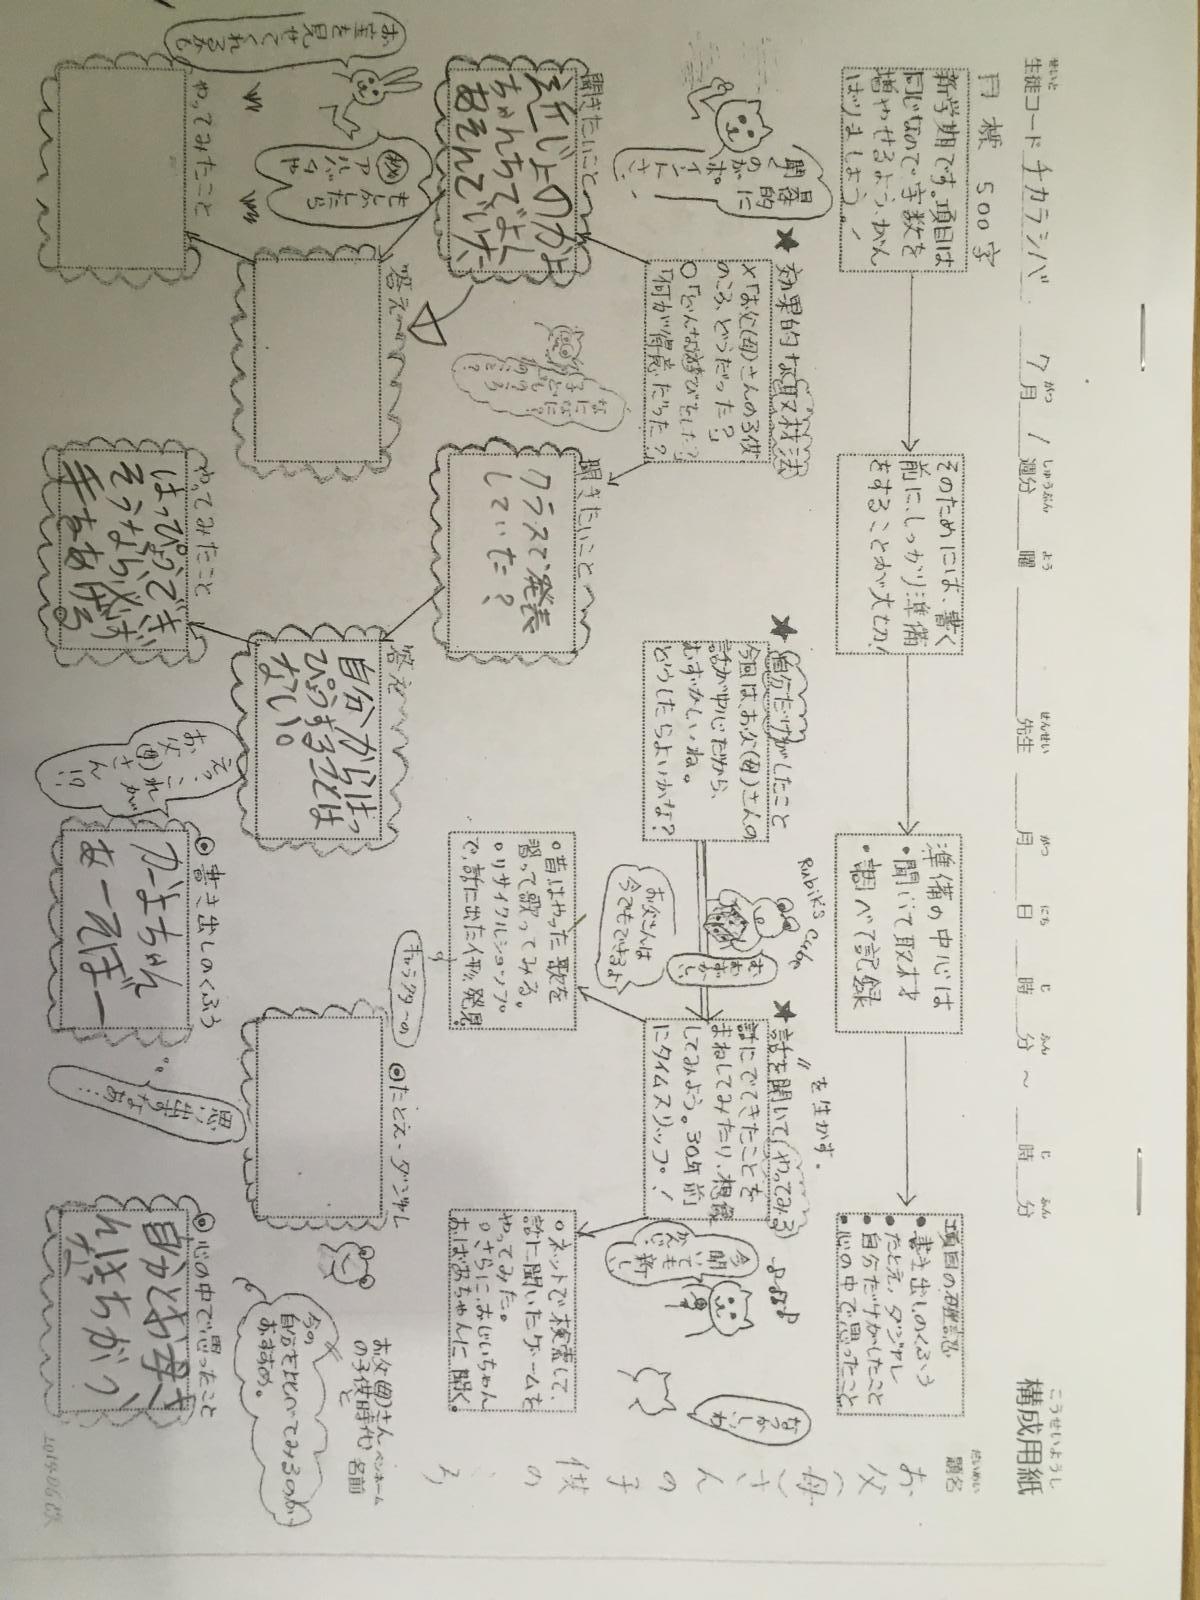 構成用紙
こうせいようし
生徒コード チカラシバ 7月 1週分 曜 先生 月 日 時 分 ~ 時 分
せいと がつ しゅうぶん よう せんせい がつ にち じ ふん じ ふん
題名
だいめい
お父(母)さんの子供のころ
目標 500字
新学期です。項目は
同じなので、字数を
増やせるよう、がん
ばりましょう!
そのためには、書く
前に、しっかり準備
をすることが大切!
準備の中心は
・聞いて取材
・調べて記録
項目の確認
・書き出しのくふう
・たとえ、ダジャレ
・自分だけがしたこと
・心の中で思ったこと
★効果的な取材法
×「お父(母)さんの子供
のころ、どうだった?」
○「どんな遊びをした?」
「何が得意だった?」
具体的に
聞く
のが
ポイント
さ!
★自分だけがしたこと
今回は、お父(母)さんの
話が中心だから、
むずかしいね。
どうしたらよいかな?
★話を聞いて(やってみる)
〃を生かす。
話にでてきたことを
まねしてみたり、想像
してみよう。30年前
にタイムスリップ!
Rubik's Cube
むずかしい
お父さんは
今でもできるよ
今
聞いても
新しい
なつかしいね
聞きたいこと
近じょのかよ
ちゃんちでよく
あそんでいた
聞きたいこと
クラスで、発表
していた?
○昔はやった歌を
習って歌ってみる。
○リサイクルショップ。
で、話に出た人形、発見
○ネットで検索して、
話に聞いたゲームを
やってみた。
○さらに、おじいちゃん
おばあちゃんに聞く。
なになに?
子どもの
ころ
もしかしたら
アルバムや
お宝を見せてくれるかも
答え
答え
自分からはっ
ぴょうすることは
ない。
◎たとえ・ダジャレ
キャラクターの
お父(母)さん
の子供時代
と
今の
自分を比べてみるのが
おすすめ。
ペンネーム
名前
やってみたこと
やってみたこと
はっぴょうでき
そうなら必ず
手をあげる
えっ、これが
お父(母)さん!?
◎書き出しのくふう
かーよちゃん
あーそぼー
思い出すなぁ…
◎心の中で思ったこと
自分とお母さ
んはちがう